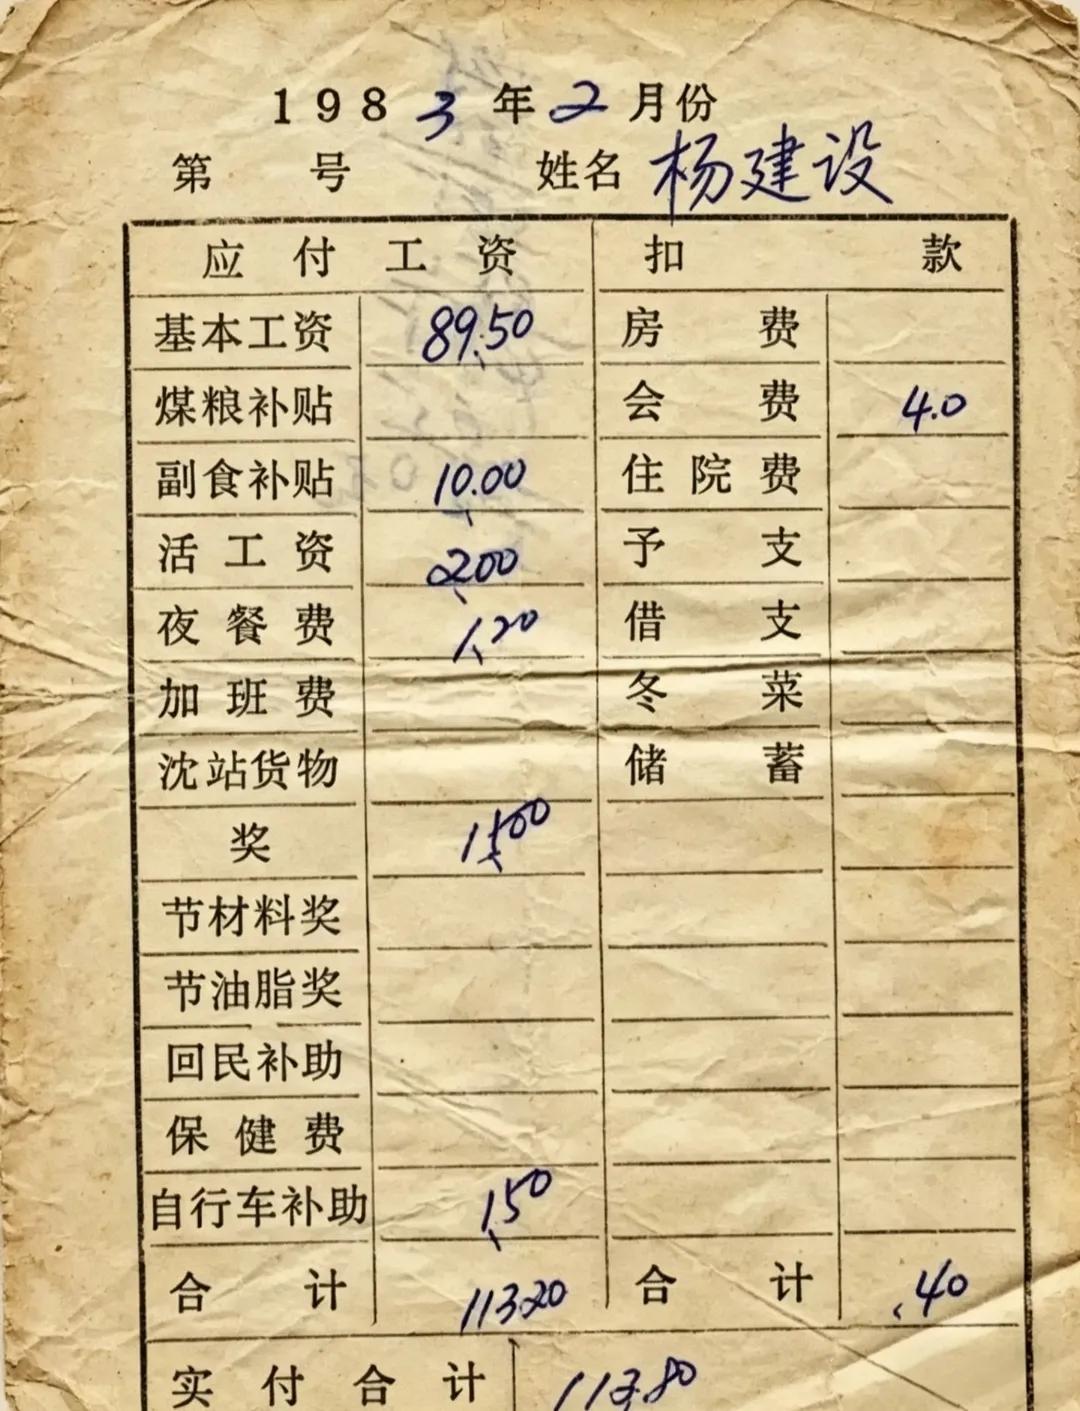 1983年2月份
第 号 姓名 杨建设
应付工资 扣款
基本工资 89.50 房费
煤粮补贴 会费 4.0
副食补贴 10.00 住院费
活工资 2.00 予支
夜餐费 1.20 借支
加班费 冬菜
沈站货物 储蓄
奖 15.00
节材料奖
节油脂奖
回民补助
保健费
自行车补助 1.50
合计 113.20 合计 .40
实付合计 113.80